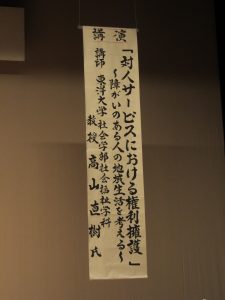 講演
「対人サービスにおける権利擁護」
～障がいのある人の地域生活を考える～
講師 東洋大学社会学部社会福祉学科
教授 高山直樹氏